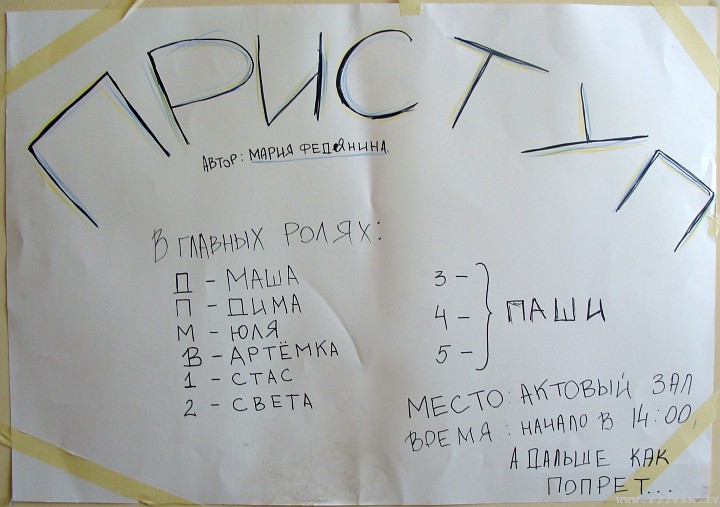 ПРИСТ⊥П
АВТОР: МАРИЯ ФЕДЯНИНА
В ГЛАВНЫХ РОЛЯХ:
Д - МАША
П - ДИМА
М - ЮЛЯ
В - АРТЁМКА
1 - СТАС
2 - СВЕТА
3 -
4 -
5 -
ПАШИ
МЕСТО: АКТОВЫЙ ЗАЛ
ВРЕМЯ: НАЧАЛО В 14:00,
А ДАЛЬШЕ КАК
ПОПРЕТ...